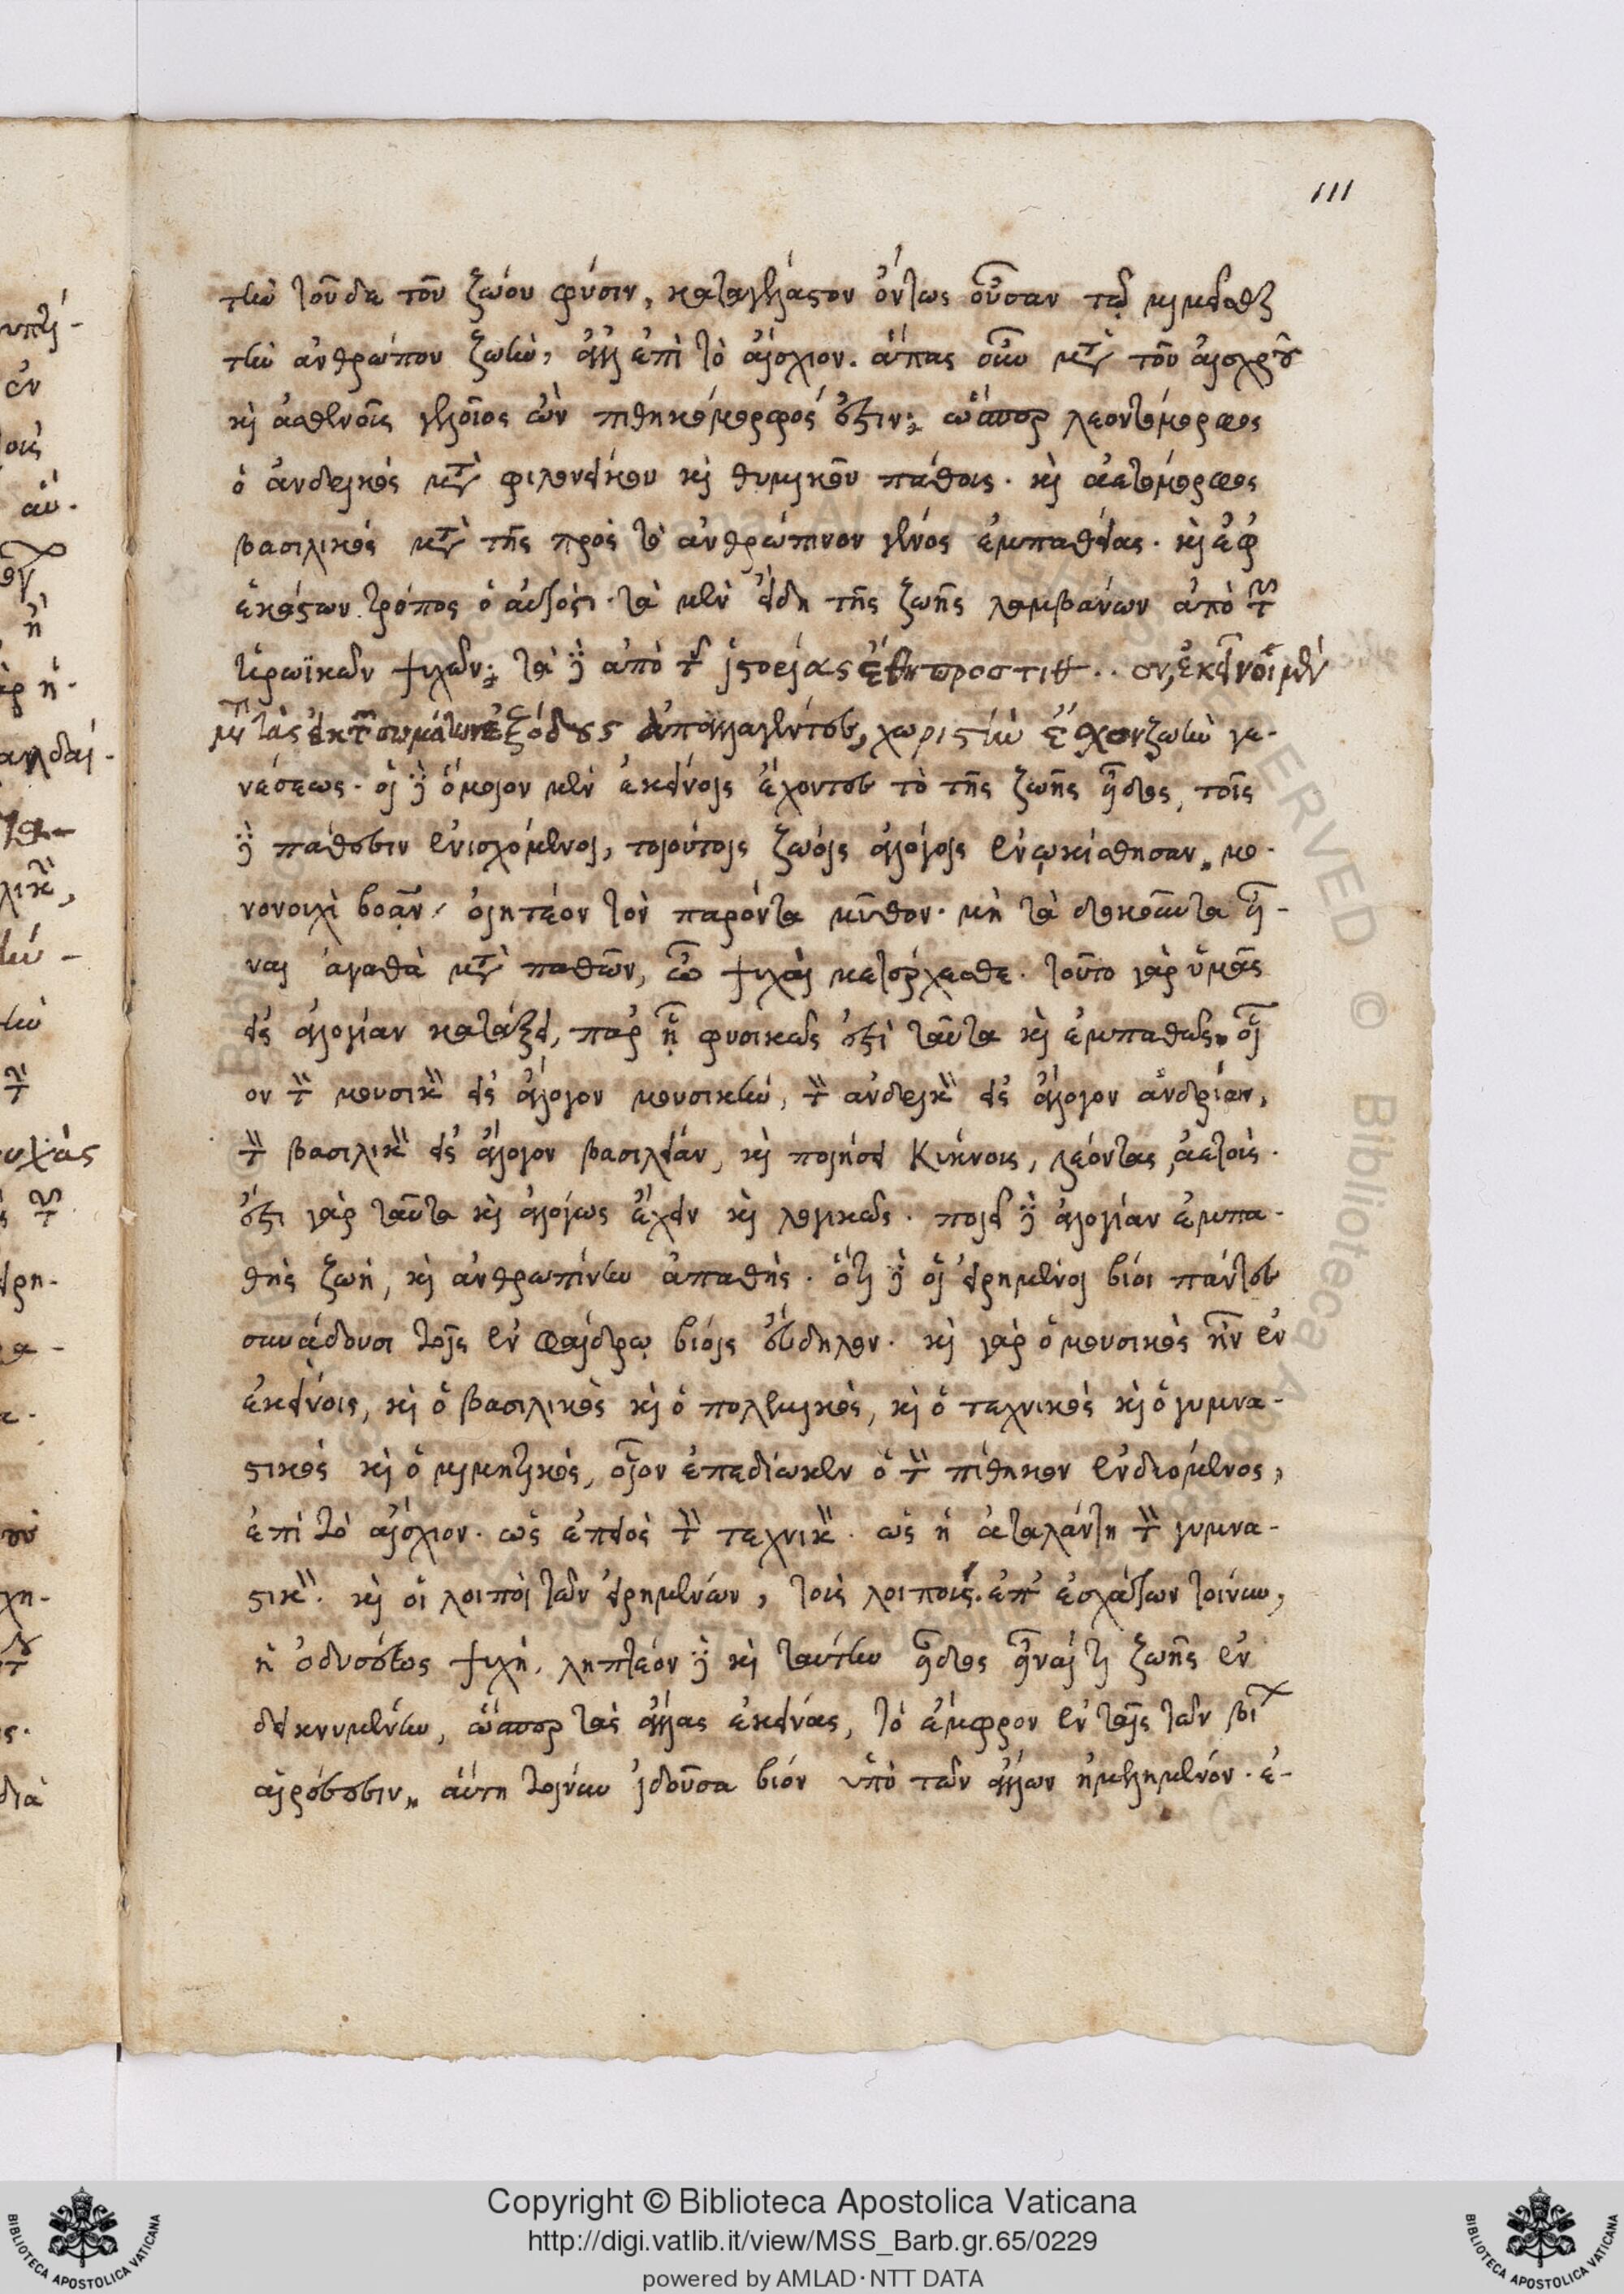 111
τὴν τοῦδε τοῦ ζώου φύσιν, καταγέλαστον ὄντως οὖσαν τῷ μιμεῖσθαι
τὴν ἀνθρώπου ζωὴν, ἀλλ' ἐπὶ τὸ αἴσχιον. ἅπας οὖν μετὰ τοῦ αἰσχροῦ
καὶ ἀσθενοῦς γελοῖος ὢν πιθηκόμορφός ἐστιν· ὥσπερ λεοντόμορφος
ὁ ἀνδρικὸς μετὰ φιλονείκου καὶ θυμικοῦ πάθους. καὶ ἀετόμορφος
βασιλικὸς μετὰ τῆς πρὸς τὸ ἀνθρώπινον γένος ἐμπαθείας. καὶ ἐφ'
ἑκάστων τρόπος ὁ αὐτός ἐστι. τὰ μὲν εἴδη τῆς ζωῆς λαμβάνων ἀπὸ τῶν
ἡρωϊκῶν ψυχῶν· τὰ δὲ ἀπὸ τῆς ἱστορίας ἔθη προστιθ.. ον, ἐκεῖνοι μὲν
μετὰ τὰς ἐκ τῶν σωμάτων ἐξόδους ἀπαλλαγέντες, χωριστὴν ἔχον ζωὴν γε-
νέσεως. οἱ δὲ ὅμοιον μὲν ἐκείνοις ἔχοντες τὸ τῆς ζωῆς εἶδος, τοῖς
δὲ πάθεσιν ἐνισχόμενοι, τοιούτοις ζώοις ἀλόγοις ἐνῳκίσθησαν, μο-
νονουχὶ βοᾶν οἰητέον τὸν παρόντα μῦθον. μὴ τὰ δοκοῦντα εἶ-
ναι ἀγαθὰ μετὰ παθῶν, ὦ ψυχαὶ μετέρχεσθε. τοῦτο γὰρ ὑμᾶς
εἰς ἀλογίαν κατάξει, παρ' ᾗ φυσικῶς ἐστὶ ταῦτα καὶ ἐμπαθῶς, οἷ
ον τὸν μουσικὸν εἰς ἄλογον μουσικὴν, τὸν ἀνδρικὸν εἰς ἄλογον ἀνδρίαν,
τὸν βασιλικὸν εἰς ἄλογον βασιλείαν, καὶ ποιήσει κύκνους, λέοντας, ἀετούς.
ἔστι γὰρ ταῦτα καὶ ἀλόγως ἔχειν καὶ λογικῶς. ποιεῖ δὲ ἀλογίαν ἐμπα-
θὴς ζωή, καὶ ἀνθρωπίνην ἀπαθής. ὅτι δὲ οἱ εἰρημένοι βίοι πάντες
συνᾴδουσι τοῖς ἐν Φαίδρῳ βίοις εὔδηλον. καὶ γὰρ ὁ μουσικὸς ἦν ἐν
ἐκείνοις, καὶ ὁ βασιλικὸς καὶ ὁ πολεμικὸς, καὶ ὁ τεχνικὸς καὶ ὁ γυμνα-
στικὸς καὶ ὁ μιμητικὸς, οἷον ἐπεδίωκεν ὁ τὸν πίθηκον ἐνδυόμενος,
ἐπὶ τὸ αἴσχιον. ὡς ἐπειὸς τὸν τεχνικόν. ὡς ἡ ἀταλάντη τὸν γυμνα-
στικόν. καὶ οἱ λοιποὶ τῶν εἰρημένων, τοὺς λοιπούς. ἐπ' ἐσχάτων τοίνυν,
ἡ ὀδυσσέως ψυχή, ληπτέον δὲ καὶ ταύτην εἶδος εἶναί τι ζωῆς ἐν
δεικνυμένην, ὥσπερ τὰς ἄλλας ἐκείνας, τὸ ἔμφρον ἐν ταῖς τῶν βί
αἱρέσεσιν, αὕτη τοίνυν ἰδοῦσα βίον ὑπὸ τῶν ἄλλων ἠμελημένον. ἐ-
Copyright © Biblioteca Apostolica Vaticana
http://digi.vatlib.it/view/MSS_Barb.gr.65/0229
powered by AMLAD·NTT DATA
BIBLIOTECA APOSTOLICA VATICANA
BIBLIOTECA APOSTOLICA VATICANA